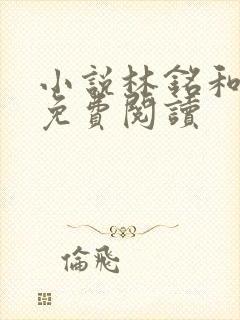 小説林銘和
免費閱讀
倫飛